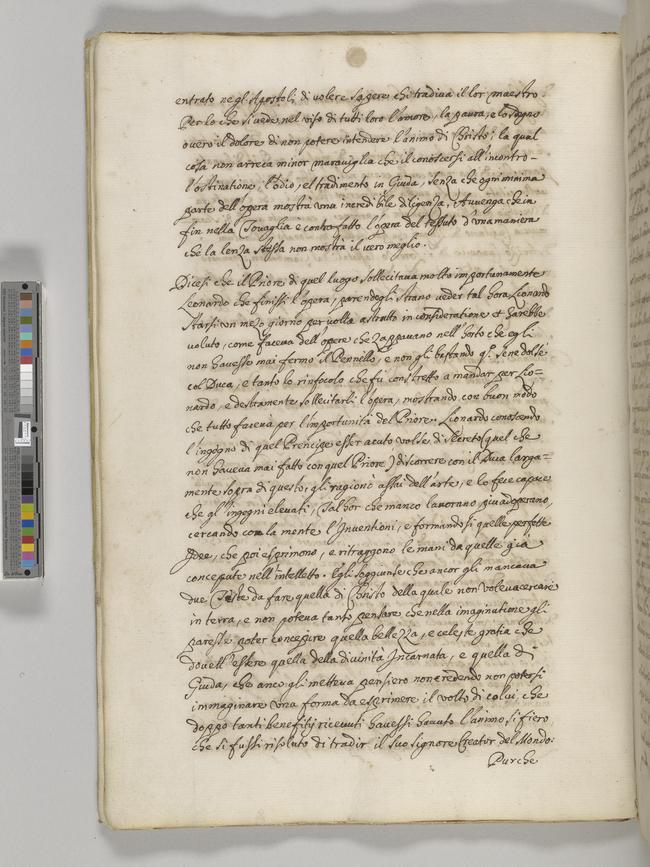 entrato negli Apostoli di volere sapere chi tradiva il lor maestro.
Per lo che si vede nel viso di tutti loro l'amore, la paura, e lo sdegno
overo il dolore di non potere intendere l'animo di Christo; la qual
cosa non arreca minor maraviglia che il conoscersi all'incontro
l'ostinatione, l'odio, e'l tradimento in Giuda, senza che ogni minima
parte dell'opera mostra una incredibile diligenza, Avvenga che in
fin nella Tovaglia è contrafatto l'opera del tessuto d'una maniera
che la lenza stessa non mostra il vero meglio.
Dicesi che il Priore di quel luogo sollecitava molto importunamente
Leonardo che finissi l'opera, parendogli strano veder tal hora Lionardo
starsi un mezo giorno per volta astratto in consideratione et harebbe
voluto, come faceva dell'opere che zappavano nell'horto che egli
non havesse mai fermo il Pennello, e non gli bastando q.º se ne dolse
col Duca, e tanto lo rinfocolo che fù constretto a mandar per Lio=
nardo, e destramente sollecitarli l'opera, mostrando con buon modo
che tutto faceva per l'importunità del Priore. Lionardo conoscendo
l'ingegno di quel Prencipe esser acuto volse discreto (quel che
non haveva mai fatto con quel Priore) discorrere con il Duca larga=
mente sopra di questo; gli ragionò assai dell'arte, e lo fece capace
che gl'ingegni elevati, Tal hor che manco lavorano più adoperano,
cercando con la mente l'Inventioni, e formandosi quelle perfette
Idee, che poi esprimono, e ritraggono le mani da quelle già
concepute nell'intelletto. Egli soggiunse che ancor gli mancava
due Teste da fare quella di Christo della quale non voleva cercare
in terra, e non poteva tanto pensare che nella imaginatione gli
paresse poter concepire quella bellezza, e celeste gratia che
dovett'essere quella della divinità Incarnata, e quella di
Giuda, che anco gli metteva pensiero non credendo potersi
immaginare una forma da esprimere il volto di colui, che
doppo tanti benefitij ricevuti havessi havuto l'animo si fiero
che si fussi risoluto di tradir il suo signore Creator del Mondo:
Purche